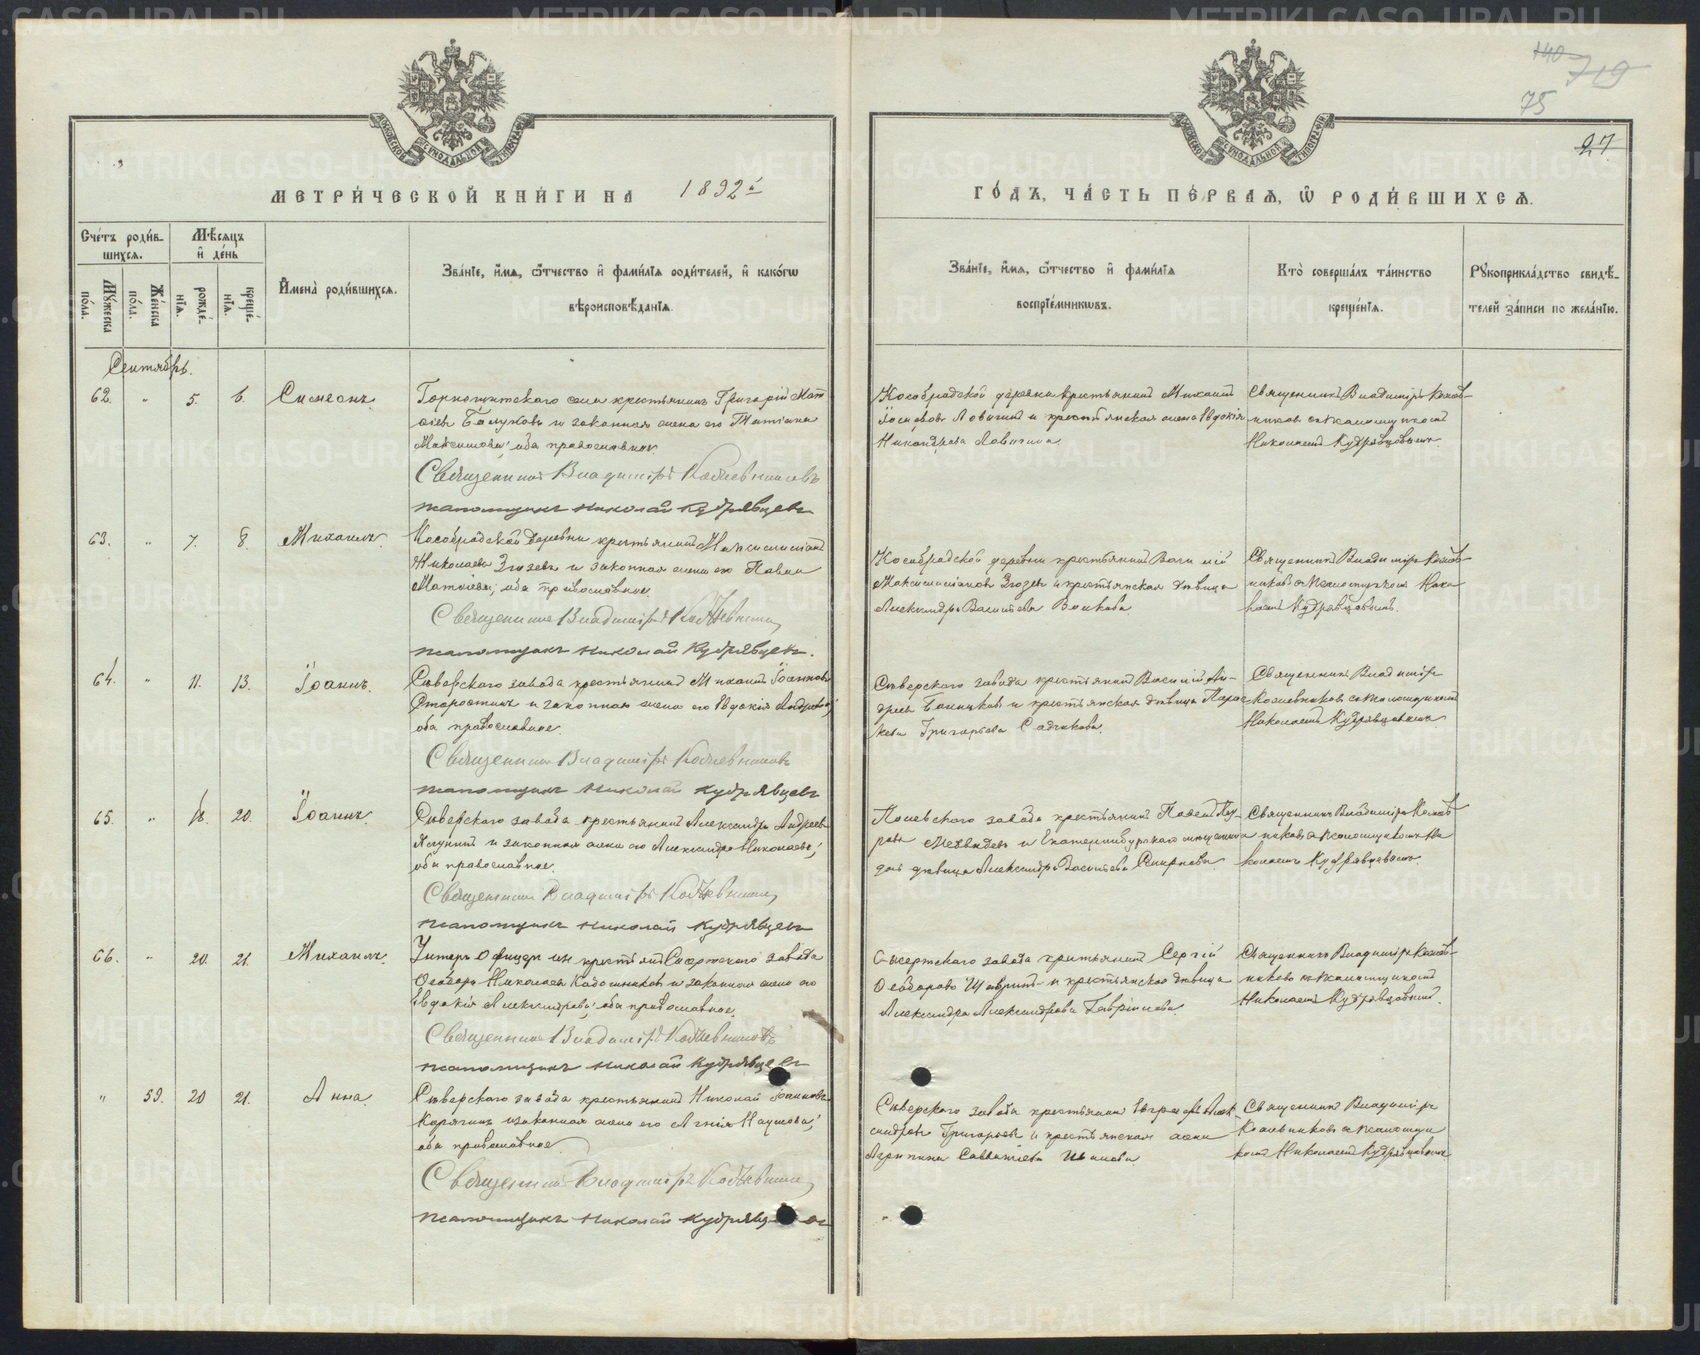 140
719
75
27
МЕТРИ́ЧЕСКОЙ КНИ́ГИ НА 1892й
ГО́ДЪ, ЧА́СТЬ ПЕ́РВАЯ, Ѽ РОДИ́ВШИХСЯ.
Сче́тъ роди́в-
шихся.
Мѣ́сяцъ
и҆ де́нь
Мꙋ́жеска
по́ла.
Же́нска
по́ла.
рожде́-
нїя.
креще́-
нїя.
И҆мена̀ роди́вшихся.
Зва́нїе, и҆́мя, ѻ҆́тчество и҆ фами́лїя роди́телей, и҆ како́гѡ
вѣроисповѣ́данїя.
Зва́нїе, и҆́мя, ѻ҆́тчество и҆ фами́лїя
воспрїе́мникѡвъ.
Кто̀ соверша́лъ та́инство
креще́нїя.
Рꙋкоприкла́дство свидѣ́-
телей за́писи по жела́нїю.
Сентябрь.
62. " 5. 6. Симеонъ.
Горнощитскаго села крестьянинъ Григорій Мат-
ѳіевъ и законная жена его Татіана
Максимова; оба православные.
Священникъ Владиміръ Кожевниковъ
псаломщикъ Николай Кудрявцевъ
Кособродской деревни крестьянинъ Михаилъ
Іосифовъ и крестьянская жена Евдокія
Никандрова
Священникъ Владиміръ Кожев-
никовъ съ псаломщикомъ
Николаемъ Кудрявцовымъ.
63. " 7. 8. Михаилъ.
Кособродской деревни крестьянинъ Максимиліанъ
Николаевъ Зюзевъ и законная жена его Павла
Матѳіева; оба православные.
Священникъ Владиміръ Кожевников
псаломщикъ Николай Кудрявцевъ.
Кособродской деревни крестьянинъ Василій
Максимиліановъ Зюзевъ и крестьянская дѣвица
Александра Васильева Волкова
Священникъ Владиміръ Кожев-
никовъ съ псаломщикомъ Нико-
лаемъ Кудрявцовымъ.
64. " 11. 13. Іоаннъ.
Сѣверскаго завода крестьянинъ Михаилъ Іоанновъ
Старостинъ и законная жена его Евдокія Андреева;
оба православные.
Священникъ Владиміръ Кожевниковъ
псаломщикъ Николай Кудрявцевъ
Сѣверскаго завода крестьянинъ Василій Ан-
дреевъ и крестьянская дѣвица Парас-
кева Григорьева Садчикова.
Священникъ Владиміръ
Кожевниковъ съ псаломщикомъ
Николаемъ Кудрявцовымъ
65. " 18. 20. Іоаннъ.
Сѣверскаго завода крестьянинъ Александръ Андреевъ
и законная жена его Александра Николаева;
оба православные.
Священникъ Владиміръ Кожевников
псаломщикъ Николай Кудрявцевъ
Полевскаго завода крестьянинъ Павелъ Пет-
ровъ Медвѣдевъ и Екатеринбургская мѣщанская
дѣвица Александра Васильева Смирнова.
Священникъ Владиміръ Кожев-
никовъ съ псаломщикомъ Ни-
колаемъ Кудрявцевымъ.
66. " 20. 21. Михаилъ.
Унтеръ Офицеръ изъ крестьянъ Сысертскаго завода
Ѳеодоръ Николаевъ и законная жена его
Евдокія Александрова; оба православные.
Священникъ Владиміръ Кожевниковъ
псаломщикъ Николай Кудрявцевъ
Сысертскаго завода крестьянинъ Сергій
Ѳеодоровъ и крестьянская дѣвица
Александра Александрова Гаврилова
Священникъ Владиміръ Кожев-
никовъ съ псаломщикомъ
Николаемъ Кудрявцовымъ.
" 59. 20 21. Анна.
Сѣверскаго завода крестьянинъ Николай Іоанновъ
Карягинъ и законная жена его Агнія Наумова;
оба православные.
Священникъ Владиміръ Кожевников
псаломщикъ Николай
Сѣверскаго завода крестьянинъ Евграфъ Алек-
сандровъ Григорьевъ и крестьянская жена
Агрипина Савватіева Иванова
Священникъ Владиміръ
Кожевниковъ съ псаломщи-
комъ Николаемъ Кудрявцовымъ
METRIKI.GASO-URAL.RU